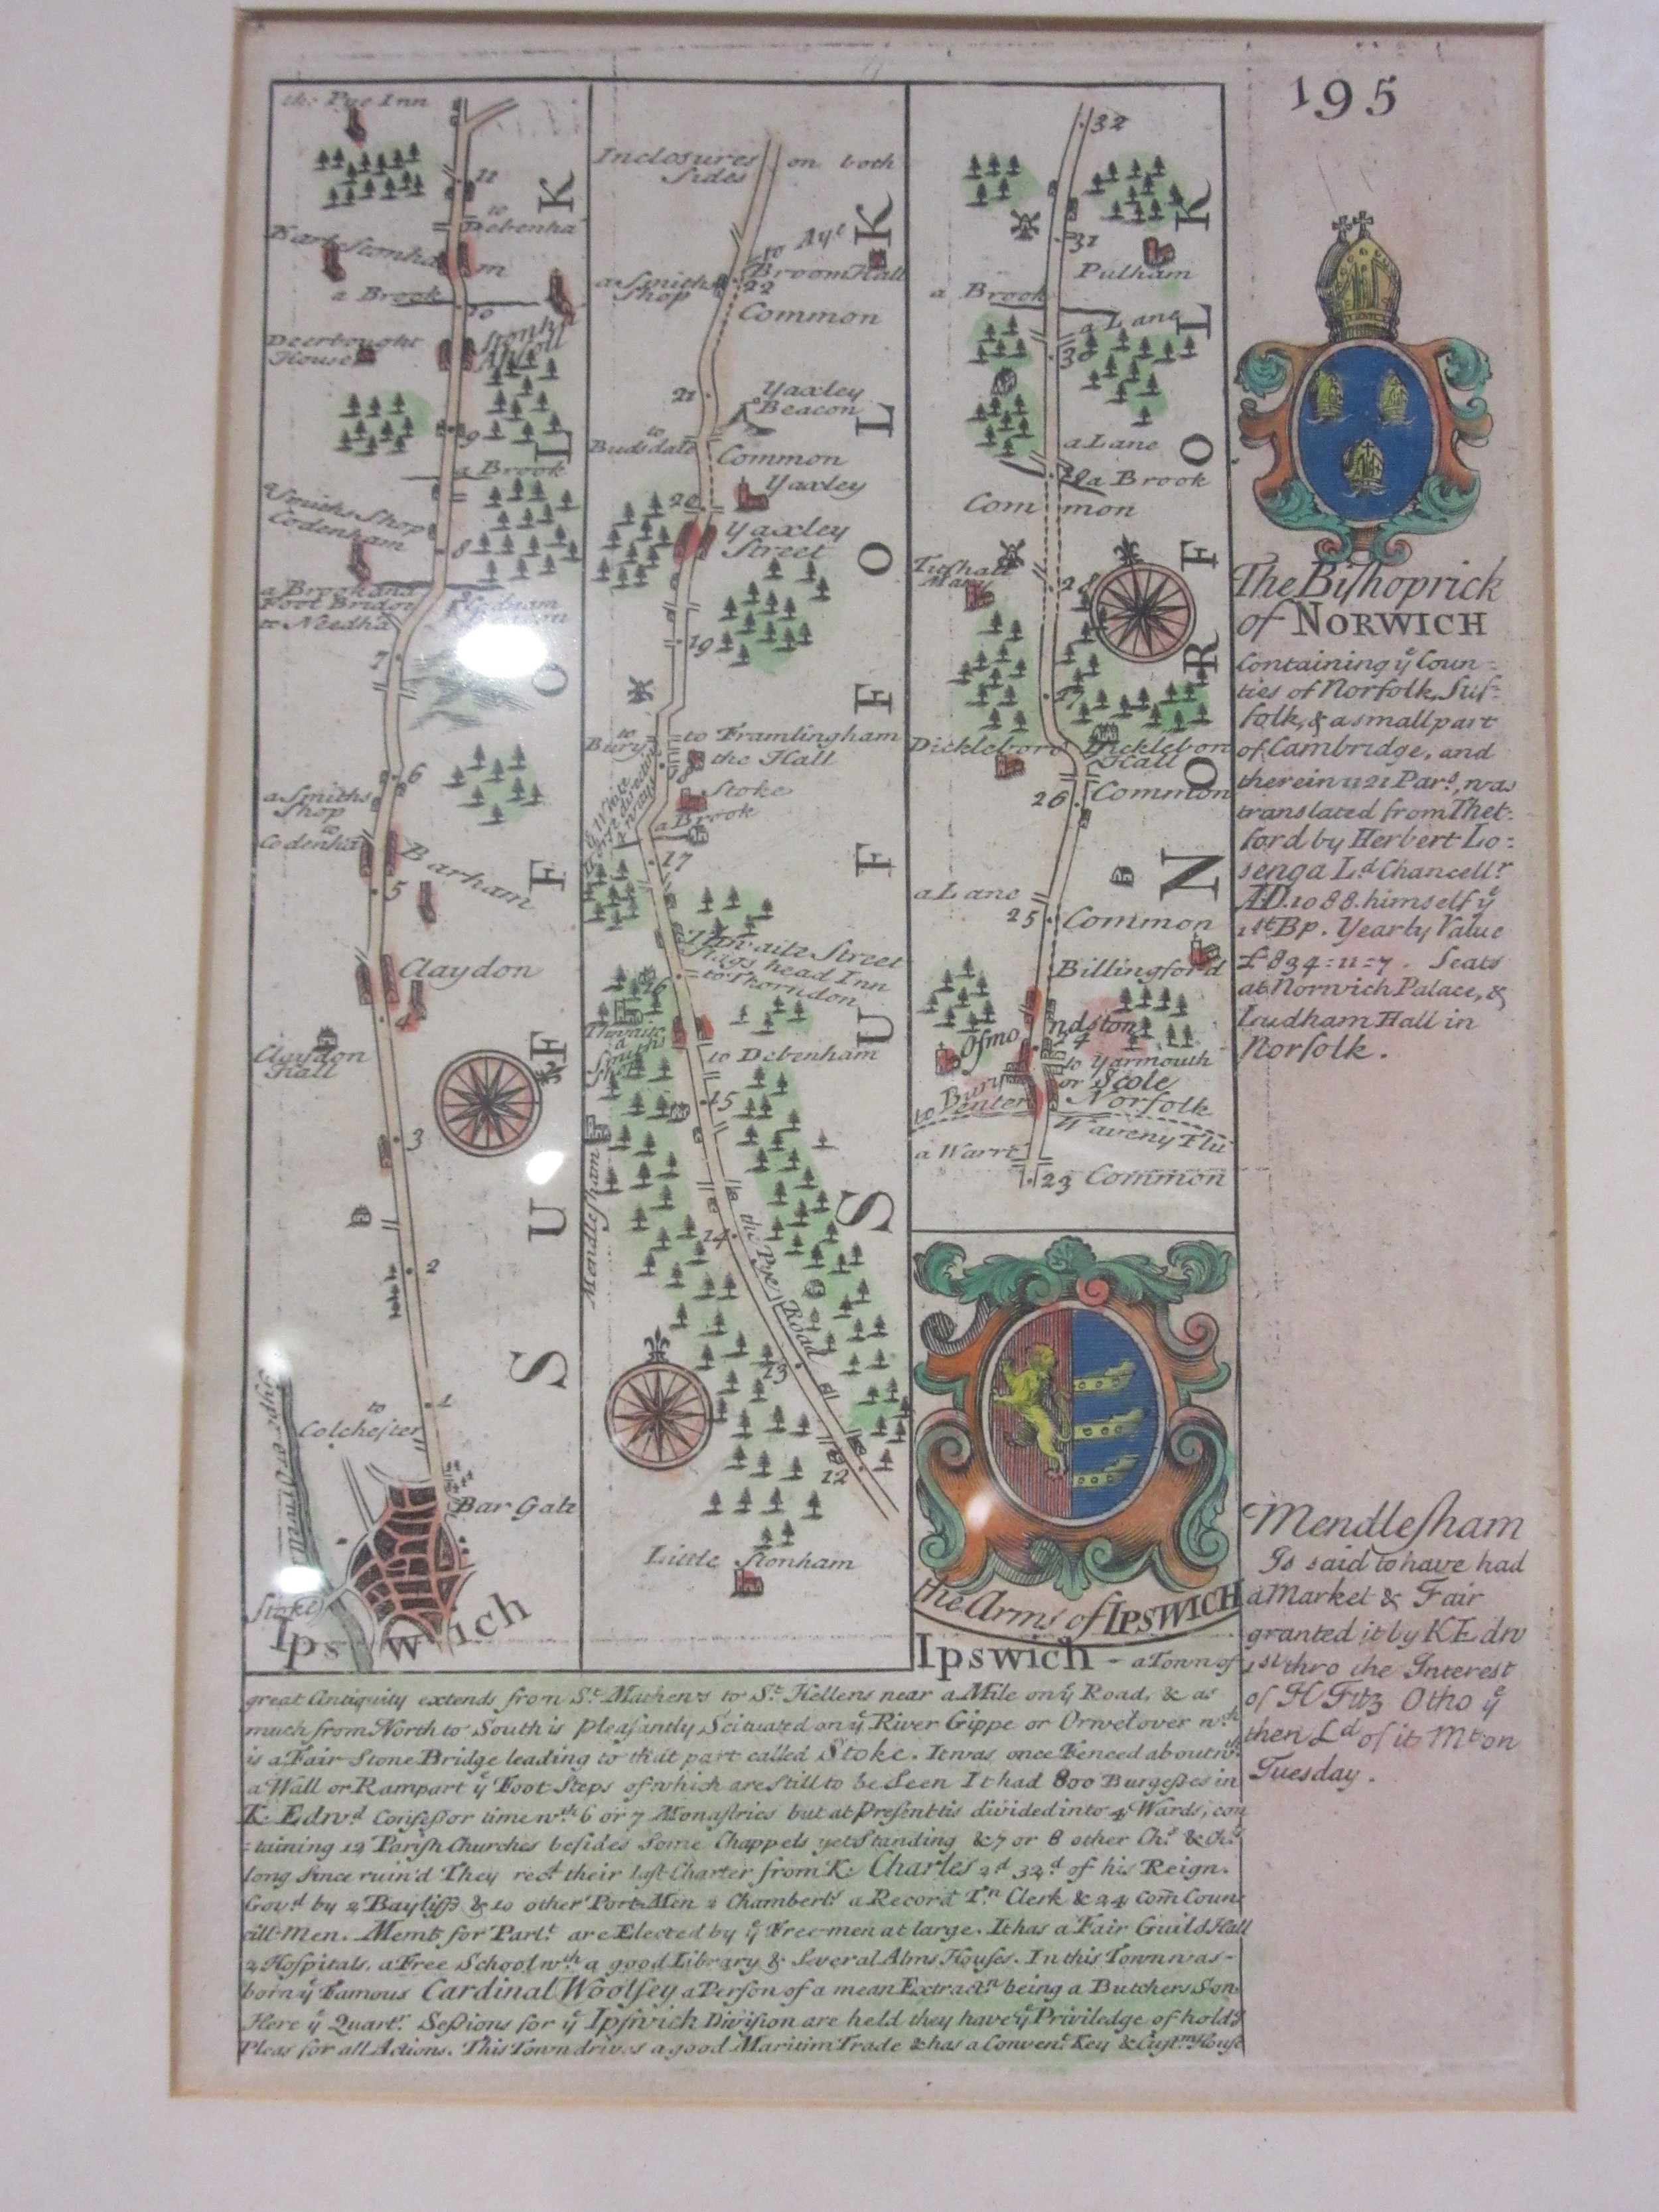 195
the Pye Inn
11
to
Debenha
m
Earl Stonha
a Brook
10
Deerbought
House
Stonh
9
a Brook
Smiths Shop
Codenham
8
a Brook and
Foot Bridge
to Needha
7
6
a Smiths
Shop
to
Codenha
Barham
5
Claydon
4
Claydon
Hall
3
2
1
to
Colchester
Bar Gate
Stoke
Ipswich
SUFFOLK
Inclosures on both
Sides
to Aye
Broom Hall
a Smiths
Shop
22
Common
21
Yaxley
Beacon
to
Budsdale
Common
Yaxley
20
Yaxley
Street
19
to
Bury
to Framlingham
the Hall
18
Stoke
a Brook
17
Thwaite Street
Stags head Inn
to Thorndon
16
Thwaite
a
Smiths
Shop
to Debenham
15
Mendlesham
14
the Pye Road
13
12
Little Stonham
SUFFOLK
32
31
Pulham
a Brook
a Lane
30
a Lane
29
a Brook
Common
Tushall
Mary
28
27
Dickleboro
Dickleboro
Hall
26
Common
a Lane
25
Common
Billingford
Osmondston
24
to Yarmouth
or Scole
to Bury
Enter Norfolk
Waveny Flu
a Warrt
23 Common
NORFOLK
The Arms of IPSWICH
The Bishoprick
of NORWICH
Containing ye Coun=
ties of Norfolk, Suf=
folk, & a small part
of Cambridge, and
therein 1121 Pars, was
translated from Thet=
ford by Herbert Lo=
senga Ld Chancellr
AD. 1088. himself ye
1st Bp. Yearly Value
£834=11=7. Seats
at Norwich Palace, &
Ludham Hall in
Norfolk.
Mendlesham
Is said to have had
a Market & Fair
granted it by K Edw
1st thro the Interest
of H Fitz Otho ye
then Ld of it Mt on
Tuesday.
Ipswich - a Town of
great Antiquity extends from St. Mathews to St. Hellens near a Mile on ye Road, & as
much from North to South is pleasantly Scituated on ye River Gippe or Orwel over wch
is a Fair Stone Bridge leading to that part called Stoke. It was once Fenced about wth
a Wall or Rampart ye Foot Steps of which are still to be Seen It had 800 Burgesses in
K. Edwd Confessor time wth 6 or 7 Monastries but at Present tis divided into 4 Wards, con
=taining 12 Parish Churches besides Some Chappels yet Standing & 7 or 8 other Chs & Chs
long Since ruin'd They recd their last Charter from K. Charles 2d 32d of his Reign.
Govd by 2 Bayliffs & 10 other Port Men 2 Chamberls a Recordr Tn Clerk & 24 Com̄ Coun
cill-Men. Membs for Parlt are Elected by ye Free-men at large. It has a Fair Guild Hall
2 Hospitals, a Free School wth a good Library & Several Alms Houses. In this Town was-
born ye Famous Cardinal Woolsey a Person of a mean Extractn being a Butchers Son.
Here ye Quartr Sessions for ye Ipswich Division are held they have ye Priviledge of holdg
Pleas for all Actions. This Town drives a good Maritim Trade & has a Convent Key & Custm House